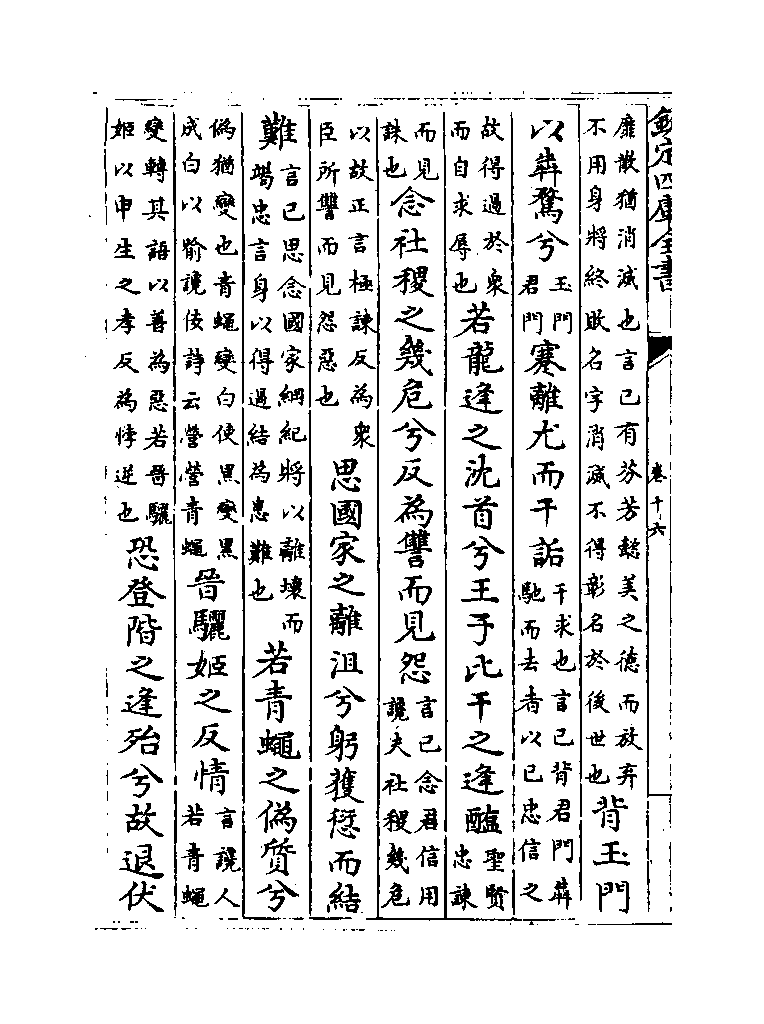 欽定四庫全書
卷十六
靡散猶消滅也言已有芬芳懿美之德而放弃
不用身將終敗名字消滅不得彰名於後世也背玉門
以犇騖兮玉門
君門蹇離尤而干詬干求也言已背君門犇
馳而去者以已忠信之
故得過於衆
而自求辱也若龍逢之沈首兮王子比干之逢醢聖賢
忠諫
而見
誅也念社稷之幾危兮反為讐而見怨言已念君信用
讒夫社稷幾危
以故正言極諫反為衆
臣所讐而見怨惡也思國家之離沮兮躬獲愆而結
難言已思念國家綱紀將以離壊而
竭忠言身以得過結為患難也若青蠅之偽質兮
偽猶變也青蠅變白使黒變黒
成白以喻讒佞詩云營營青蠅晉驪姬之反情言讒人
若青蠅
變轉其語以善為惡若晉驪
姬以申生之孝反為悖逆也恐登階之逢殆兮故退伏